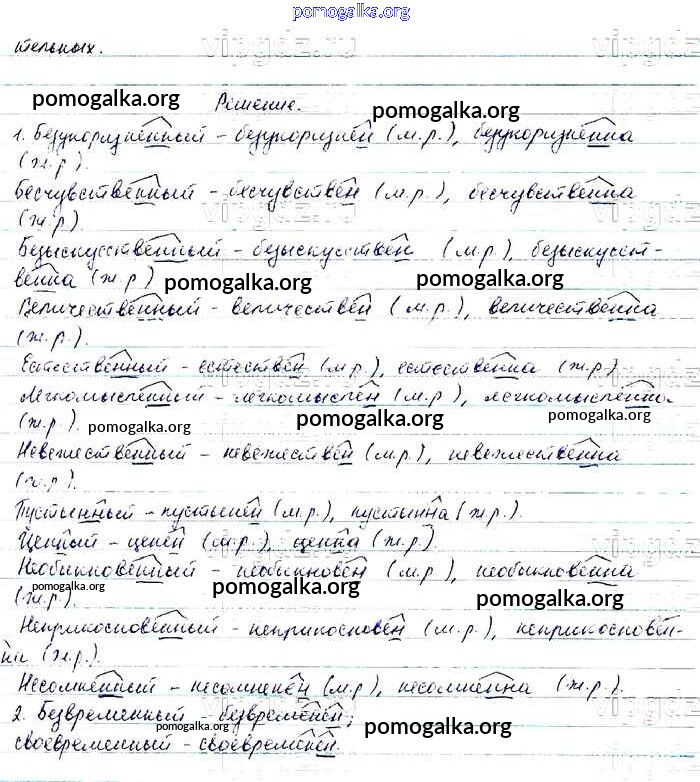 pomogalka.org
тельных.
pomogalka.org Решение. pomogalka.org
1. Безукоризненный – безукоризнен (м.р.), безукоризненна
(ж.р).
Бесчувственный – бесчувствен (м.р.), бесчувственна
(ж.р).
Безыскусственный – безыскусствен (м.р.), безыскусст-
венна (ж.р) pomogalka.org pomogalka.org
Величественный – величествен (м.р.), величественна
(ж.р.).
Естественный – естествен (м.р.), естественна (ж.р)
Легкомысленный – легкомыслен (м.р.), легкомысленна
(ж.р.). pomogalka.org pomogalka.org pomogalka.org
Невежественный – невежествен (м.р.), невежественна
(ж.р).
Пустынный – пустыней (м.р.), пустынна (ж.р.).
Ценный – ценен (м.р.), ценна (ж.р).
Необыкновенный – необыкновен (м.р.), необыкновенна
(ж.р.). pomogalka.org pomogalka.org pomogalka.org
Неприкосновенный – неприкосновен (м.р.), неприкосновен-
на (ж.р.).
Несомненный – несомненен (м.р), несомненна (ж.р.).
2. Безвременный – безвременен;
своевременный – своевременен. pomogalka.org